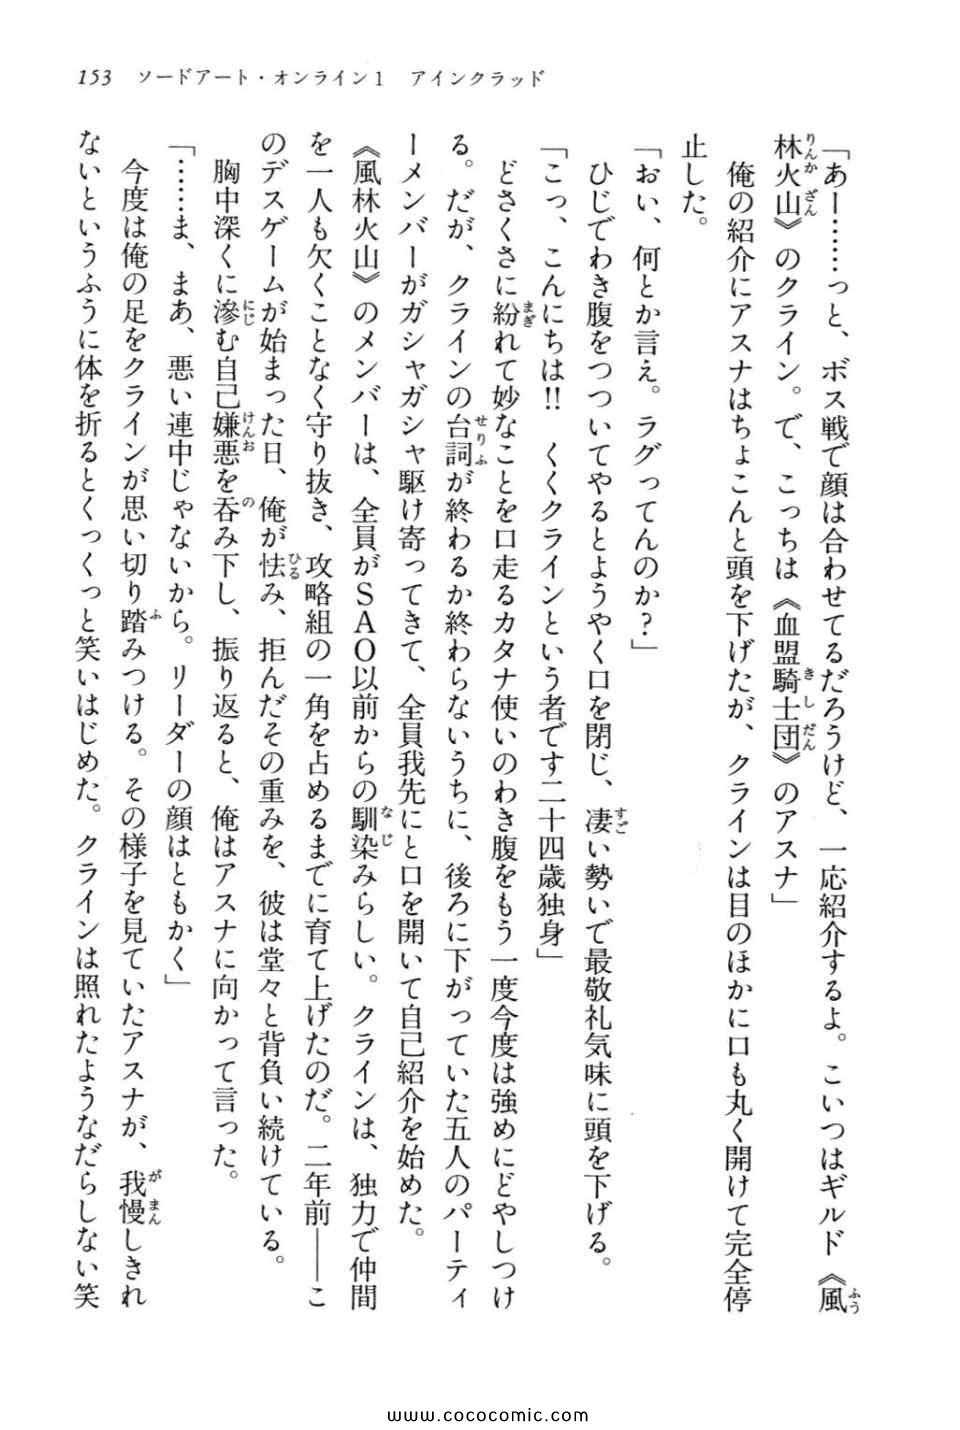 153　ソードアート・オンライン1　アインクラッド
「あー……っと、ボス戦で顔は合わせてるだろうけど、一応紹介するよ。こいつはギルド《風
林火山》のクライン。で、こっちは《血盟騎士団》のアスナ」
　俺の紹介にアスナはちょこんと頭を下げたが、クラインは目のほかに口も丸く開けて完全停
止した。
「おい、何とか言え。ラグってんのか？」
　ひじでわき腹をつついてやるとようやく口を閉じ、凄い勢いで最敬礼気味に頭を下げる。
「こっ、こんにちは!!　くくクラインという者です二十四歳独身」
　どさくさに紛れて妙なことを口走るカタナ使いのわき腹をもう一度今度は強めにどやしつけ
る。だが、クラインの台詞が終わるか終わらないうちに、後ろに下がっていた五人のパーティ
ーメンバーがガシャガシャ駆け寄ってきて、全員我先にと口を開いて自己紹介を始めた。
《風林火山》のメンバーは、全員がＳＡＯ以前からの馴染みらしい。クラインは、独力で仲間
を一人も欠くことなく守り抜き、攻略組の一角を占めるまでに育て上げたのだ。二年前――こ
のデスゲームが始まった日、俺が怯み、拒んだその重みを、彼は堂々と背負い続けている。
　胸中深くに滲む自己嫌悪を呑み下し、振り返ると、俺はアスナに向かって言った。
「……ま、まあ、悪い連中じゃないから。リーダーの顔はともかく」
　今度は俺の足をクラインが思い切り踏みつける。その様子を見ていたアスナが、我慢しきれ
ないというふうに体を折るとくっくっと笑いはじめた。クラインは照れたようなだらしない笑
www.cococomic.com